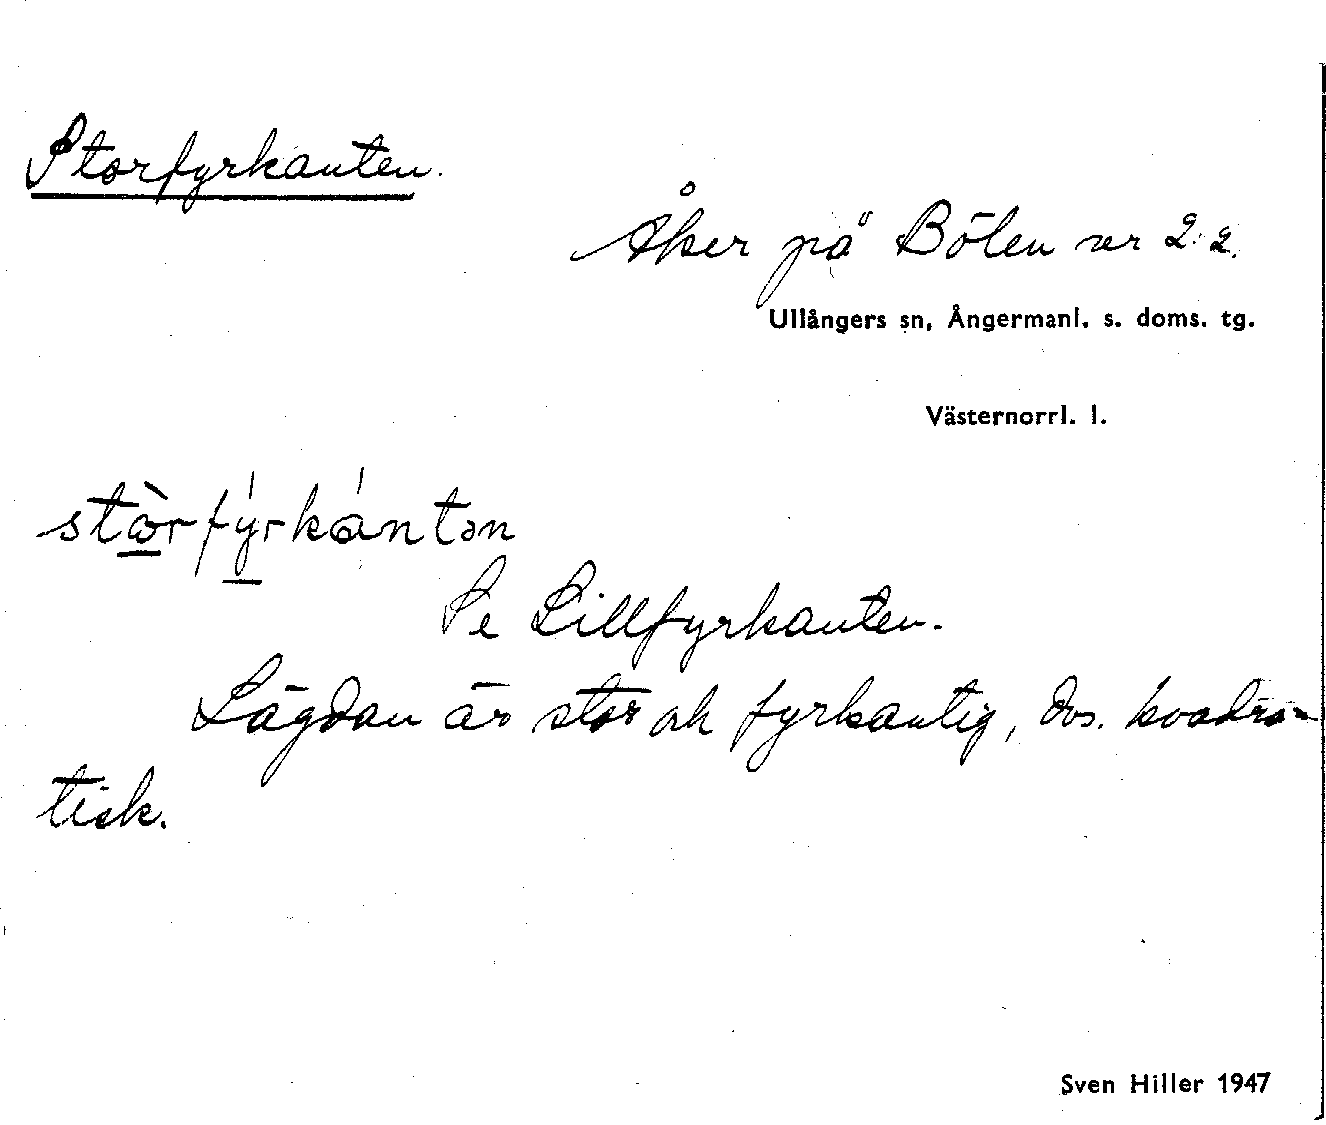 Storfyrkanten.
Åker på Bölen ser 2:2.
Ullångers sn, Ångermanl. s. doms. tg.
Västernorrl. l.
stòrfýrkántən
Se Lillfyrkanten.
Lägdan är stor och fyrkantig, dvs. kvadra-
tisk.
Sven Hiller 1947